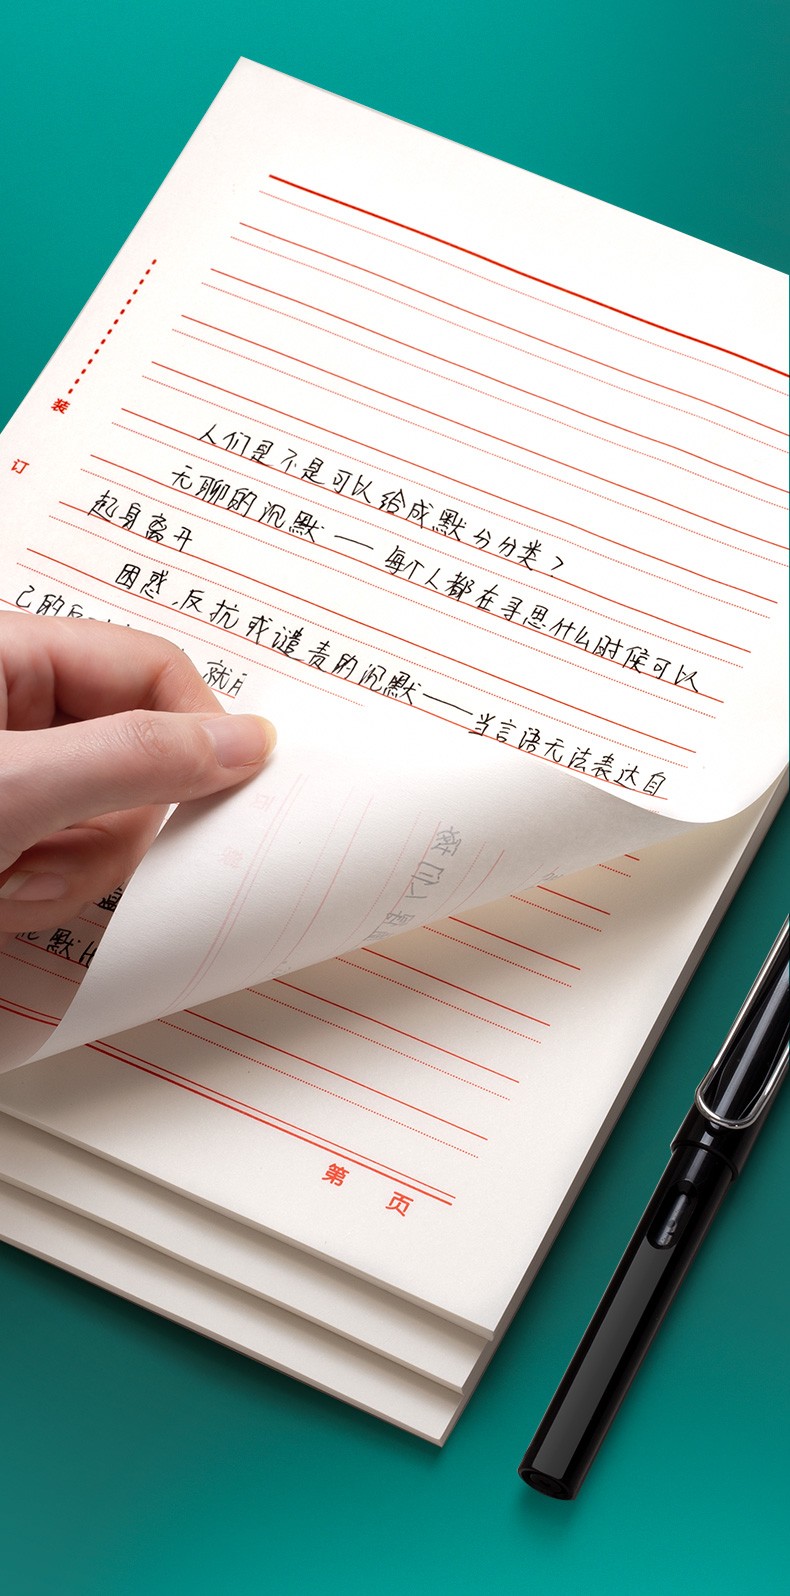 装
订
人们是不是可以给成默分分类?
无聊的沉默——每个人都在寻思什么时候可以
起身离开
困惑,反抗或谴责的沉默——当言语无法表达自
己的反
就
默
第 页